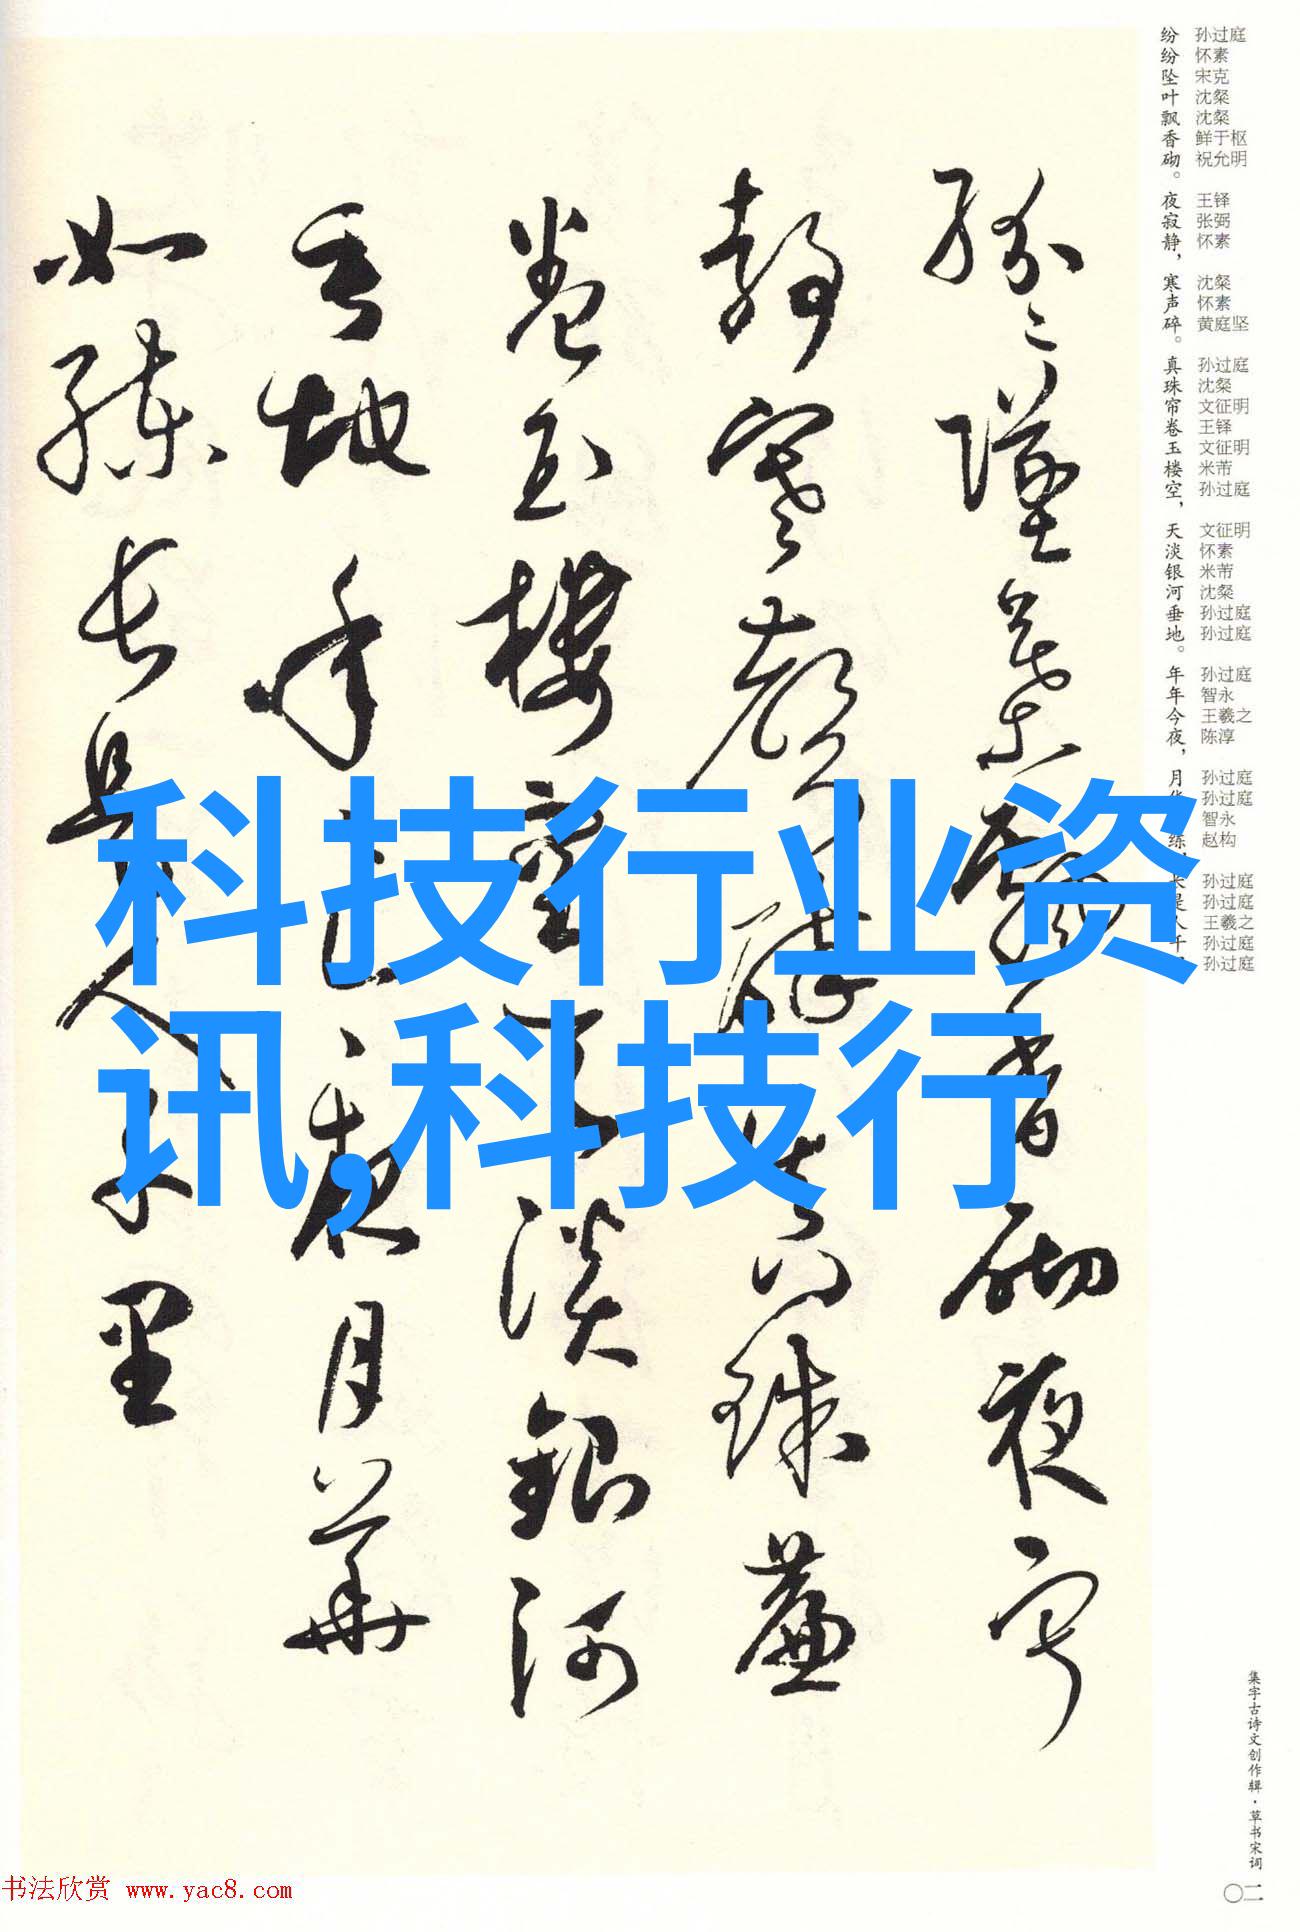 纷纷坠叶飘香砌。夜寂静，寒声碎。真珠帘卷玉楼空，天淡银河垂地。年年今夜，月
练
千
孙过庭
怀素
宋克
沈粲
沈粲
鲜于枢
祝允明
王铎
张弼
怀素
沈粲
怀素
黄庭坚
孙过庭
沈粲
文征明
王铎
文征明
米芾
孙过庭
文征明
怀素
米芾
沈粲
孙过庭
孙过庭
孙过庭
智永
王羲之
陈淳
孙过庭
孙过庭
智永
赵构
孙过庭
孙过庭
王羲之
孙过庭
孙过庭
紛々墜葉飄香砌夜寂
静寒聲碎真珠簾
卷玉樓空天淡銀河
垂地年夜月華
如練長是人千里
科技行业资
讯,科技行
集字古诗文创作辑·草书宋词
〇二
书法欣赏 www.yac8.com